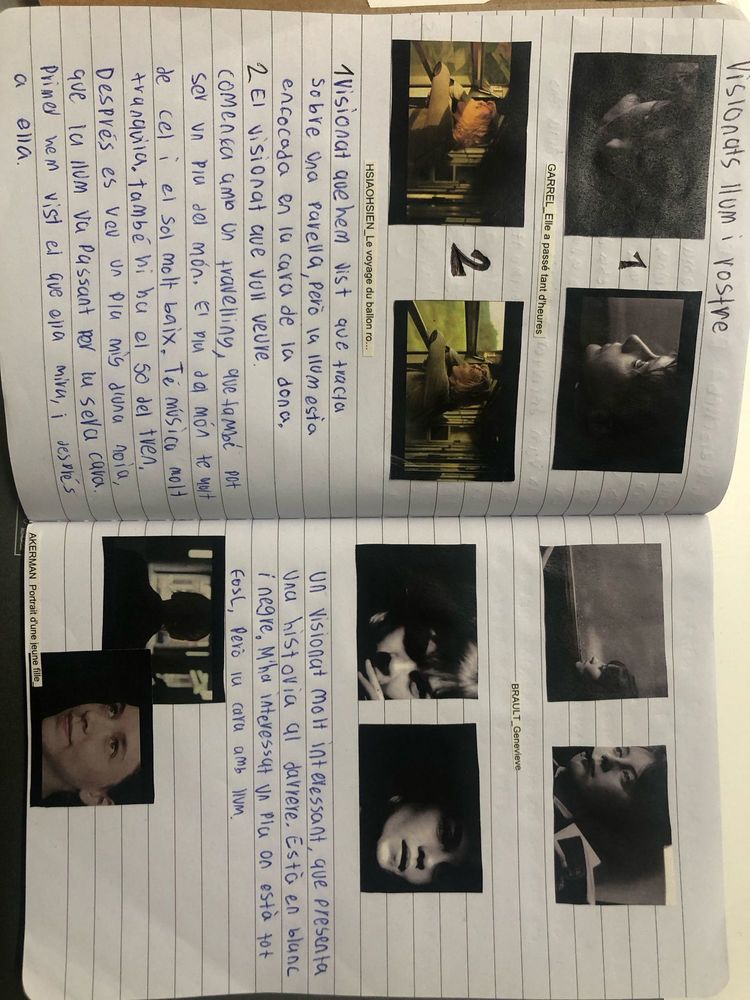 Visionats llum i rostre
1
GARREL_Elle a passé tant d'heures
2
HSIAOHSIEN_Le voyage du ballon ro...
1 Visionat que hem vist que tracta
sobre una parella, però la llum està
enfocada en la cara de la dona.
2 El visionat que vull veure.
comença amb un travelling, que també pot
ser un plu del món. El plu del món té molt
de cel i el sol molt baix. Té música molt
tranquila. també hi ha el so del tren,
Després es veu un plu mig d'una noia,
que la llum va passant per la seva cara.
Primer hem vist el que ella mira, i després
a ella.
BRAULT_Genevieve
Un visionat molt interessant, que presenta
Una historia al darrere. Està en blanc
i negre. M'ha interessat un plu on està tot
fosc, però la cara amb llum.
AKERMAN Portrait d'une jeune fille